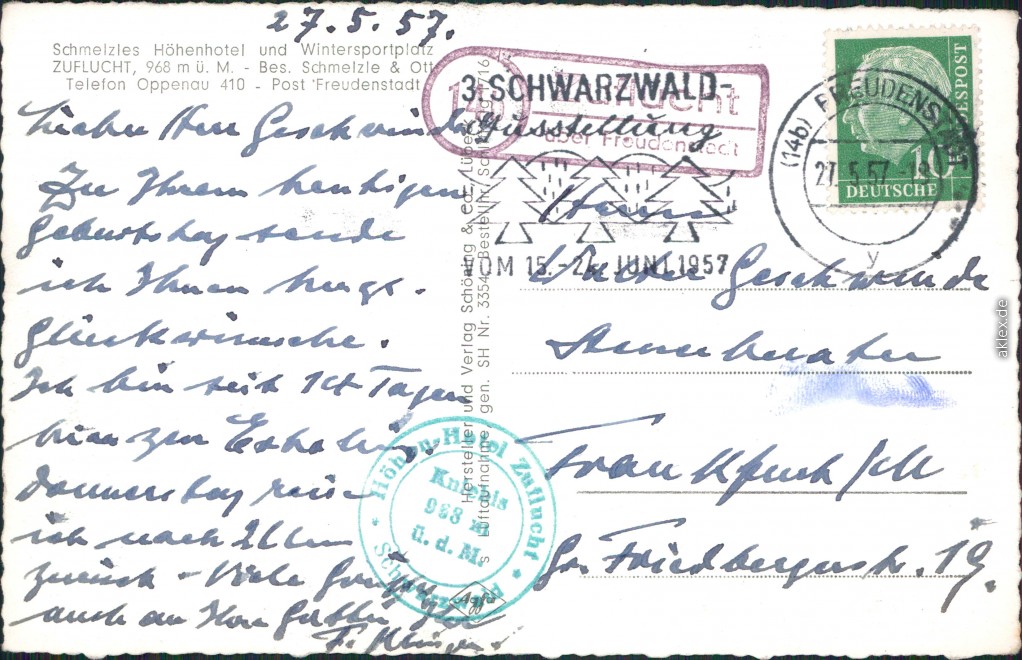 27.5.57.
Schmelzles Höhenhotel und Wintersportplatz
ZUFLUCHT, 968 m ü. M. - Bes. Schmelzle & Ott
Telefon Oppenau 410 - Post Freudenstadt
Lieber Herr Geschwinde
Zu Ihrem heutigen
Geburtstag sende
ich Ihnen herzl.
Glückwünsche.
Ich bin seit 14 Tagen
hier zur Erholg.
Donnerstag reise
ich nach Ulm
zurück - Viele Grüße
auch an Ihre Gattin
F.
Hersteller und Verlag Schöning & Co., Lübeck
Luftaufnahme gen. SH Nr. 3354
Bestell-Nr. Schl
Agfa
Höhen-Hotel Zuflucht
Kniebis
968 m
ü. d. M.
Schwarzwald
14b
Zuflucht
über Freudenstadt
3. SCHWARZWALD-
Ausstellung
VOM 15.-24. JUNI 1957
(14b) FREUDENSTADT
27.5.57.-18
y
DEUTSCHE BUNDESPOST
10
Herrn
Walter Geschwinde
Steuerberater
Frankfurt/M
Gr. Friedbergerstr. 19.
aklex.de